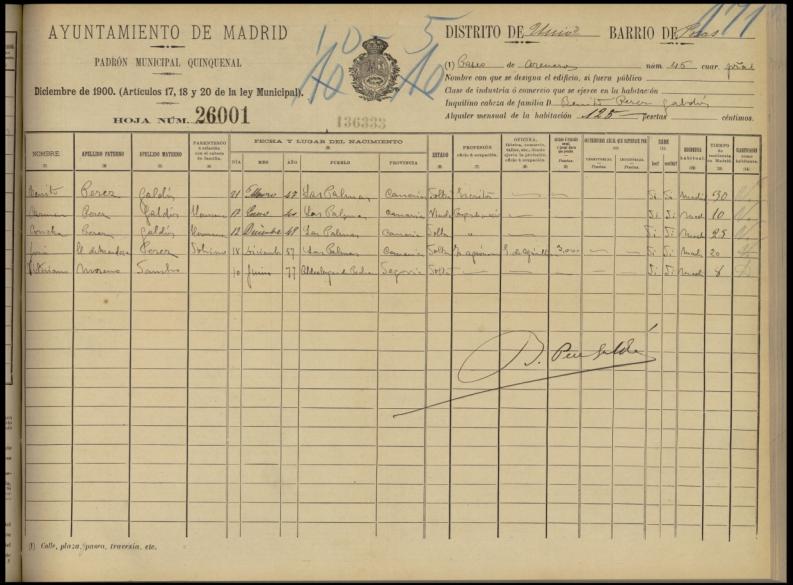 171
AYUNTAMIENTO DE MADRID
PADRÓN MUNICIPAL QUINQUENAL
Diciembre de 1900. (Artículos 17, 18 y 20 de la ley Municipal).
HOJA NÚM. 26001
136333
10-5
10 10
DISTRITO DE BARRIO DE Pozas
(1) Paseo de Areneros núm 45 cuar.
Nombre con que se designa el edificio, si fuera público
Clase de industria ó comercio que se ejerce en la habitación
Inquilino cabeza de familia D. Benito Perez Galdós
Alquiler mensual de la habitación 125 pesetas céntimos.
NOMBRE APELLIDO PATERNO APELLIDO MATERNO PARENTESCO ó relación con el cabeza de familia. FECHA Y LUGAR DEL NACIMIENTO DÍA MES AÑO PUEBLO PROVINCIA ESTADO PROFESIÓN oficio ú ocupación. OFICINA, fábrica, comercio, taller, etc., donde ejerce la profesión, oficio ú ocupación. Pesetas. TERRITORIAL Pesetas INDUSTRIAL Pesetas SABE leer? escribir? RESIDENCIA habitual. TIEMPO de residencia en Madrid. CLASIFICACIÓN como habitante.
Benito Perez Galdós 47 Las Palmas Canarias Solt Escritor — — — — Si Si Mad 30
Carmen Perez Galdós Hermana Las Palmas Canaria Viuda — — — — Si Si Mad 10
Concha Perez Galdós Hermana 12 Diciembre 48 Las Palmas Canaria Solt " — — — — Si Si Mad 25
José H. de Mendoza Perez Sobrino 18 Diciembre 57 Las Palmas Canaria Solt 3,000 — — Si Si Mad 20
Victoriano Moreno 10 Junio 77 Segovia Solt — — — — — Si Si Mad 8
B. Perez Galdós
(1) Calle, plaza, paseo, travesía, etc.